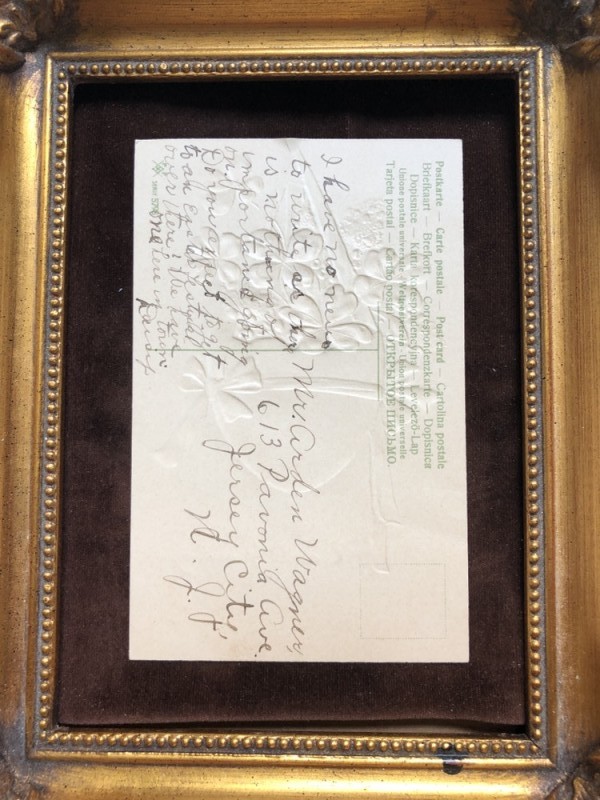 Postkarte — Carte postale — Post card — Cartolina postale
Briefkaart — Brefkort — Correspondenzkarte — Dopisnica
Dopisnice — Karta korespondencyjna — Levelező-Lap
Unione postale universale Weltpostverein Union postale universelle
Tarjeta postal — Cartão postal — ОТКРЫТОЕ ПИСЬМО.
I have no news
to write as
is nothing of
importance going
on.
to an Easter festival
over there! The best
one in town
Daisy
Mr. Arden Wagner,
613 Pavonia Ave.
Jersey City
N. J.